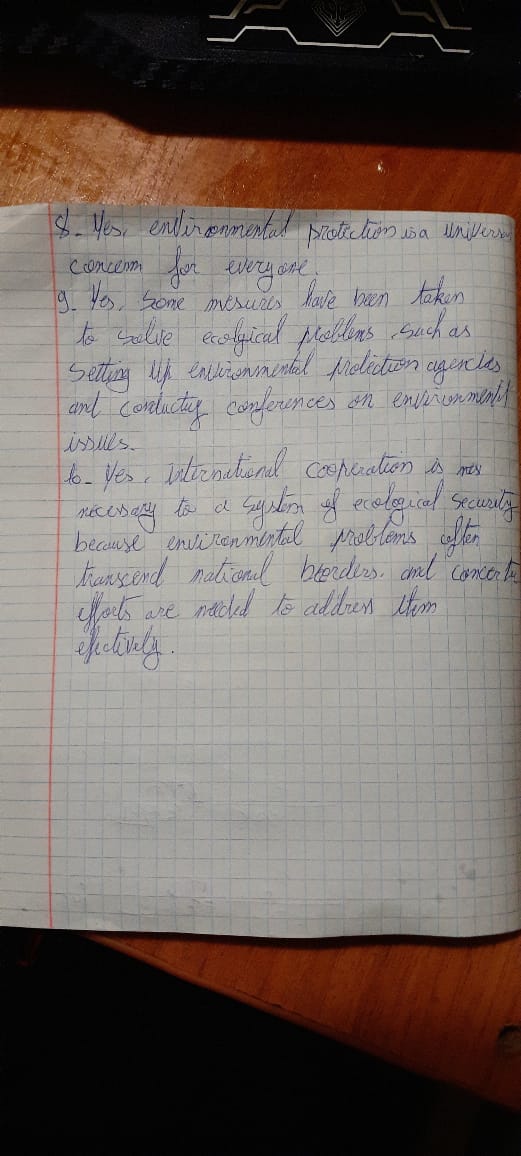 8- Yes, environmental protection is a univers
concernm for everyone.
9- Yes, some mesures have been taken
to solve ecolgical problems, such as
setting up environmental protection agencies
and conductig conferences on environmentl
issues.
10- Yes, international cooperation is nes
necessary to a system of ecological security
because environmental problems often
transcend national boorders, and concerte
efforts are needed to address them
efectively.